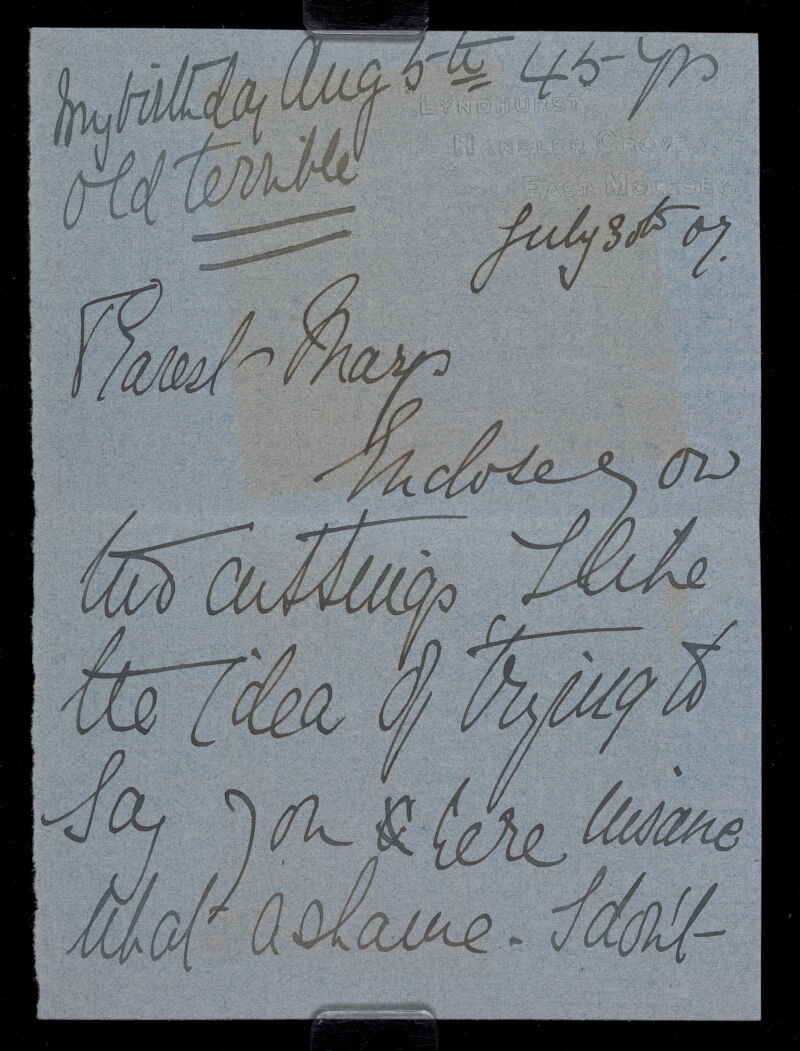 My birthday Aug 5th 45 yrs
old terrible
LYNDHURST,
HANSLER GROVE,
EAST MOLESEY.
July 30th 07.
Dearest Mary
Enclose you
two cuttings I like
the idea of trying to
say you & were insane
what a shame. I don't